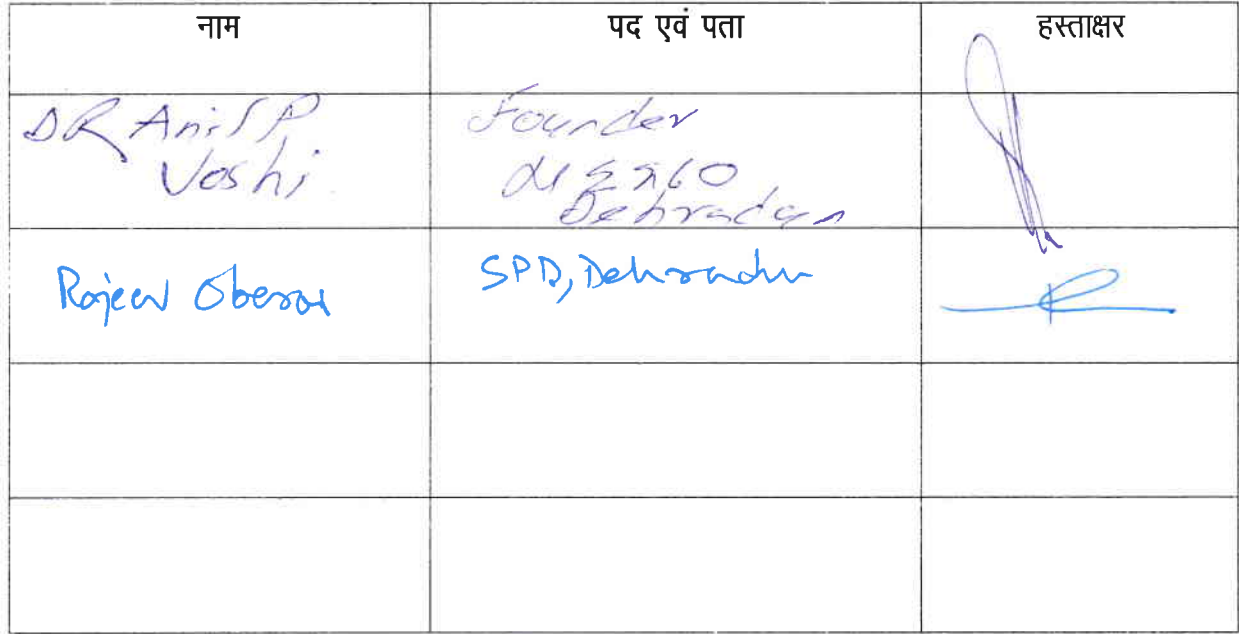 नाम पद एवं पता हस्ताक्षर
DR Anil P. Founder
Joshi
Dehradun
Rajeev Oberoi SPD, Dehradun